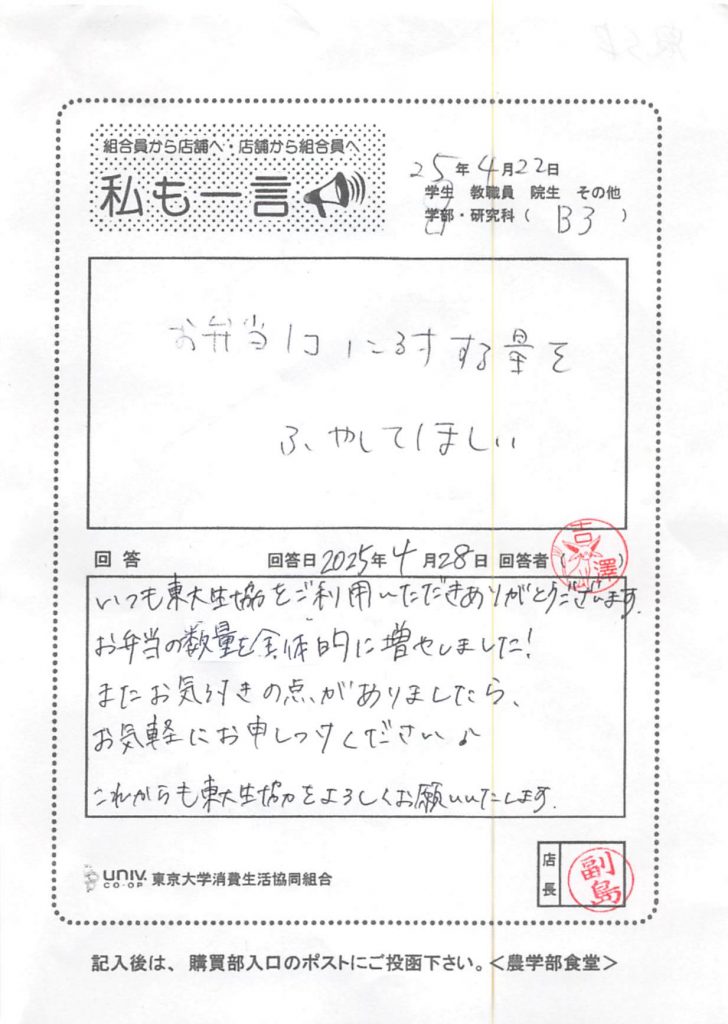 組合員から店舗へ・店舗から組合員へ
私も一言
25年4月22日
学生 教職員 院生 その他
学部・研究科( B3 )
お弁当1コに対する量を
ふやしてほしい
回答 回答日 2025年4月28日 回答者( 吉澤 )
いつも東大生協をご利用いただきありがとうございます。
お弁当の数量を全体的に増やしました!
またお気付きの点がありましたら、
お気軽にお申しつけください♪
これからも東大生協をよろしくお願いいたします。
店長 副島
UNIV. CO-OP 東京大学消費生活協同組合
記入後は、購買部入口のポストにご投函下さい。<農学部食堂>